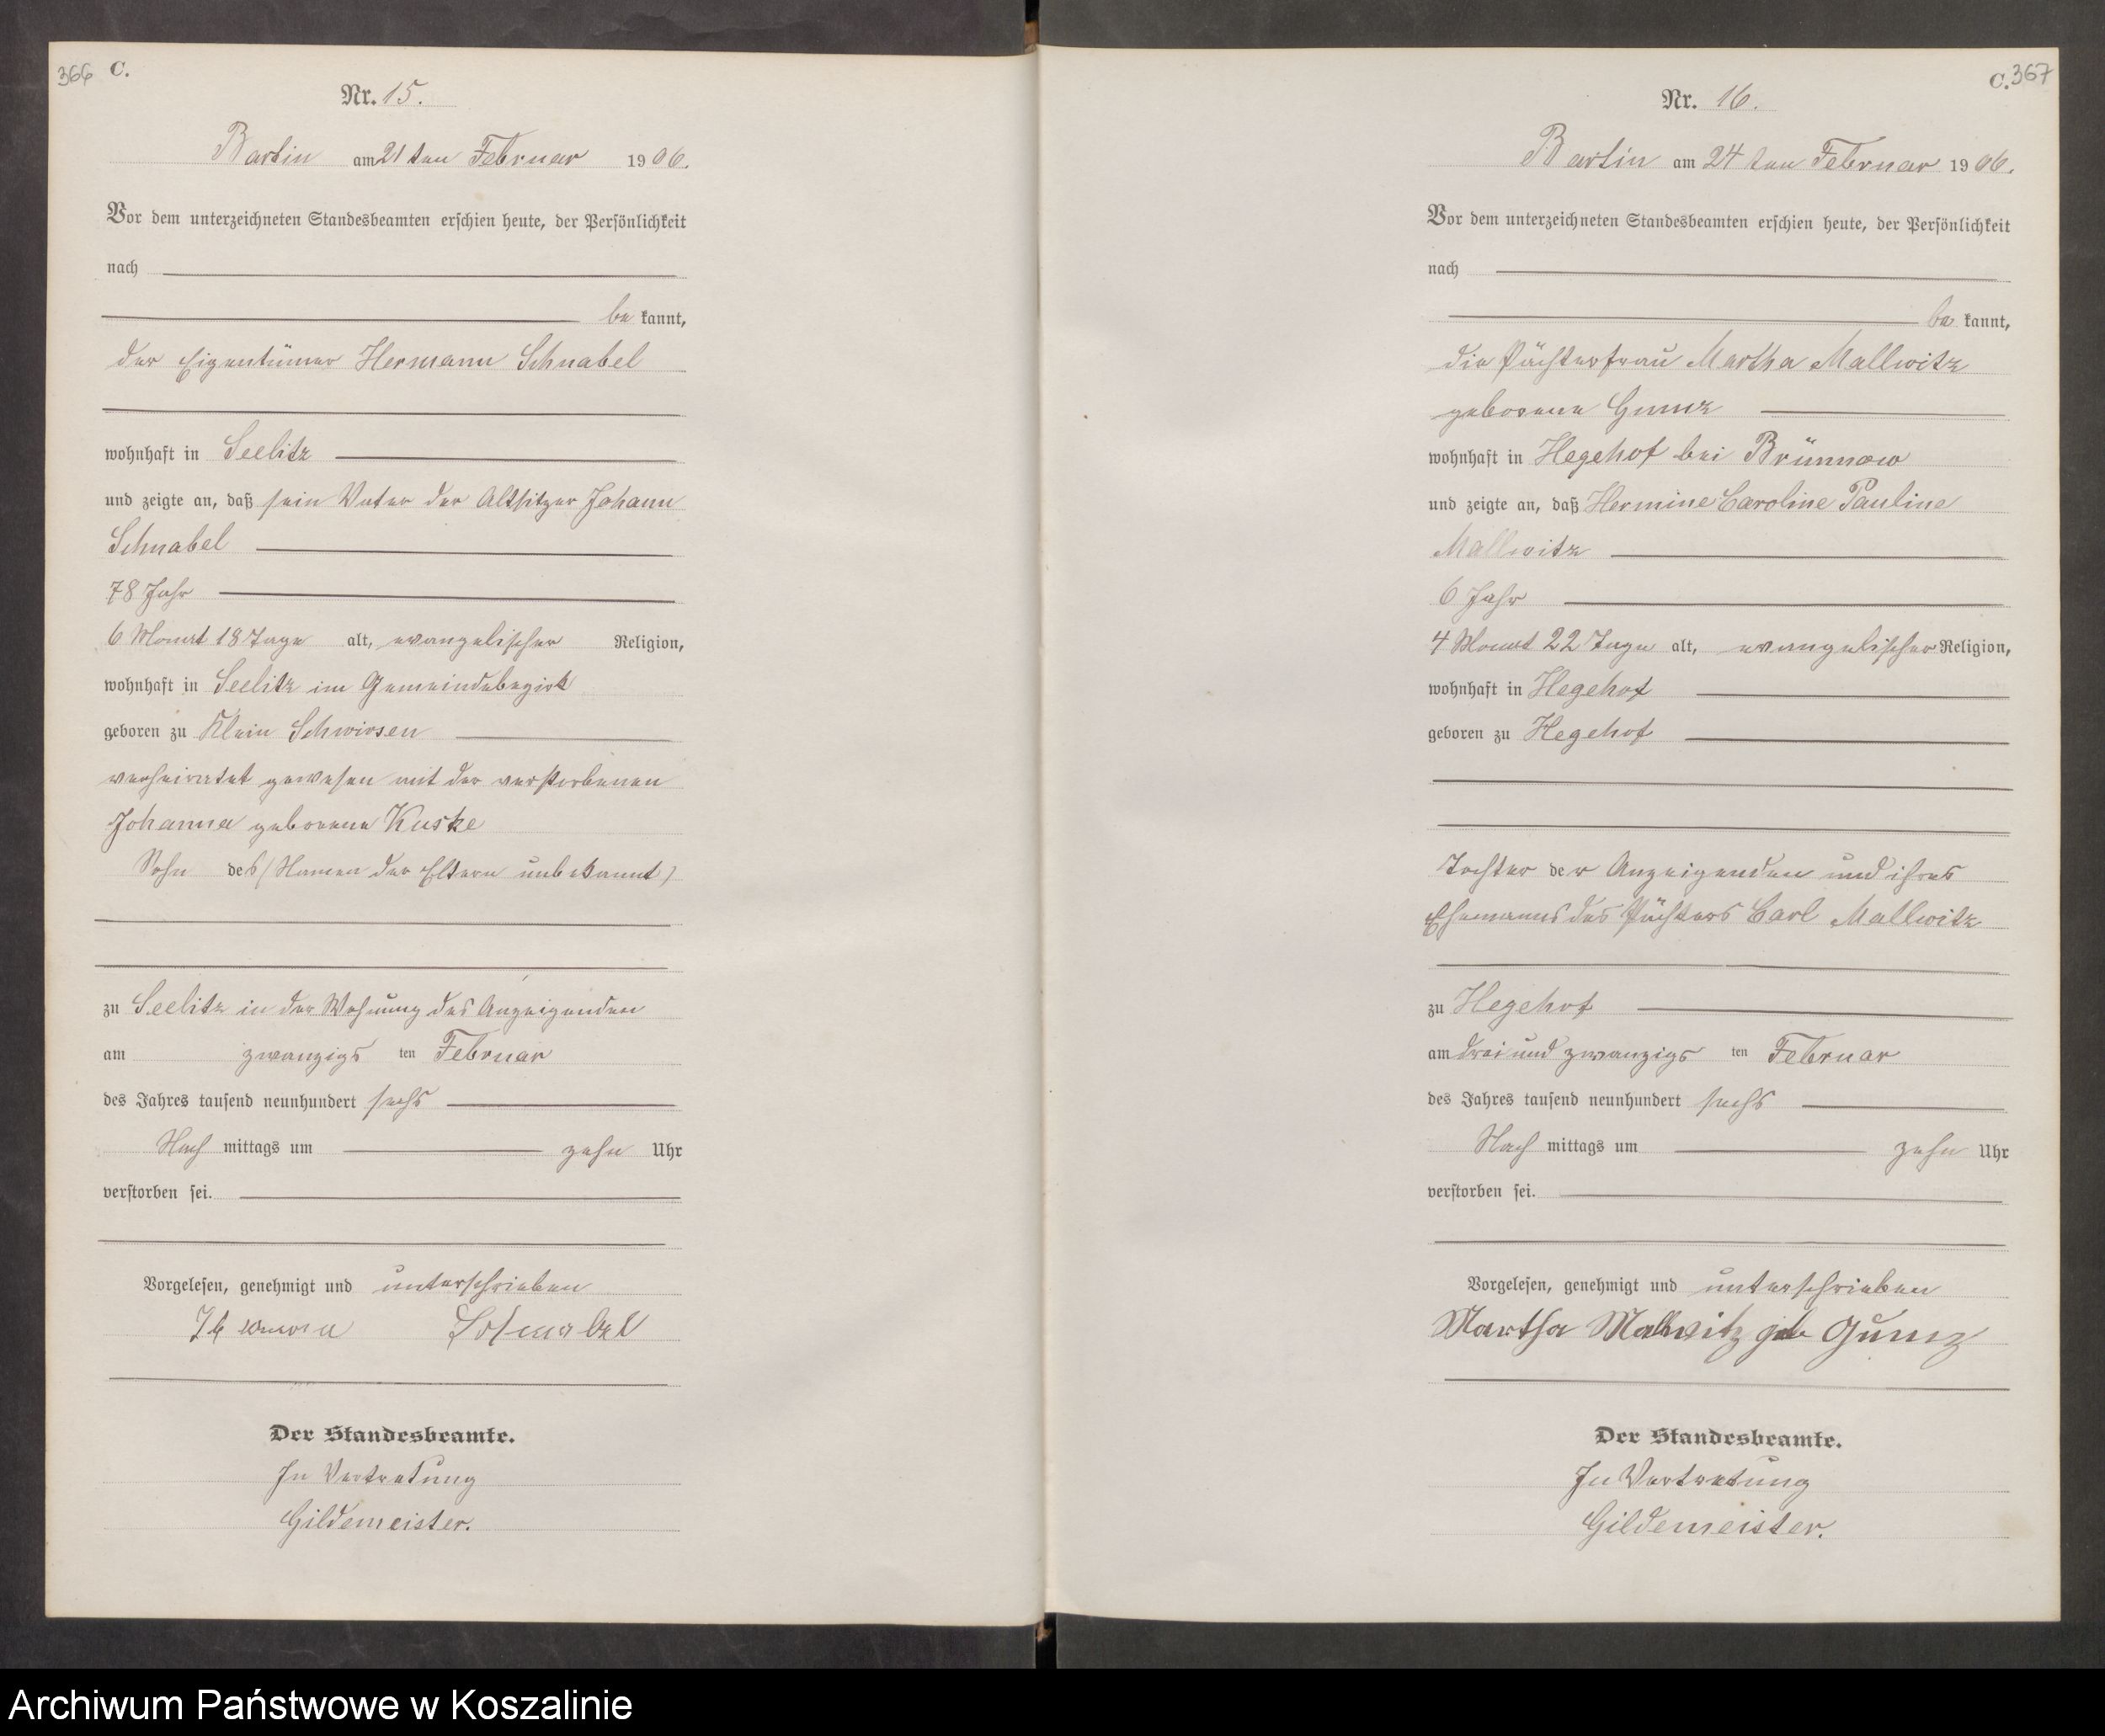 366 C.
Nr. 15.
Bartin am 21 ten Februar 1906.
Vor dem unterzeichneten Standesbeamten erschien heute, der Persönlichkeit
nach
be kannt,
der Eigentümer Hermann Schnabel
wohnhaft in Seelitz
und zeigte an, daß sein Vater der Altsitzer Johann
Schnabel
78 Jahr
6 Monat 18 Tage alt, evangelischer Religion,
wohnhaft in Seelitz im Gemeindebezirk
geboren zu Klein Schwirsen
verheiratet gewesen mit der verstorbenen
Johanna geborene Kuske
Sohn des (Namen der Eltern unbekannt)
zu Seelitz in der Wohnung des Anzeigenden
am zwanzigs ten Februar
des Jahres tausend neunhundert sechs
Nach mittags um zehn Uhr
verstorben sei.
Vorgelesen, genehmigt und unterschrieben
Hermann Schnabel
Der Standesbeamte.
In Vertretung
Gildemeister.
C. 367
Nr. 16.
Bartin am 24 ten Februar 1906.
Vor dem unterzeichneten Standesbeamten erschien heute, der Persönlichkeit
nach
be kannt,
die Pächterfrau Martha Mallwitz
geborene Gumz
wohnhaft in Hegehof bei Brünnow
und zeigte an, daß Hermine Caroline Pauline
Mallwitz
6 Jahr
4 Monat 22 Tage alt, evangelischer Religion,
wohnhaft in Hegehof
geboren zu Hegehof
Tochter der Anzeigenden und ihres
Ehemanns des Pächters Carl Mallwitz
zu Hegehof
am drei und zwanzigs ten Februar
des Jahres tausend neunhundert sechs
Nach mittags um zehn Uhr
verstorben sei.
Vorgelesen, genehmigt und unterschrieben
Martha Mallwitz geb Gumz
Der Standesbeamte.
In Vertretung
Gildemeister.
Archiwum Państwowe w Koszalinie